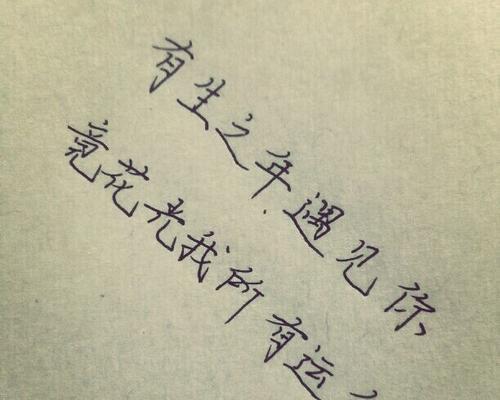 有生之年遇见你
竟花光我所有运